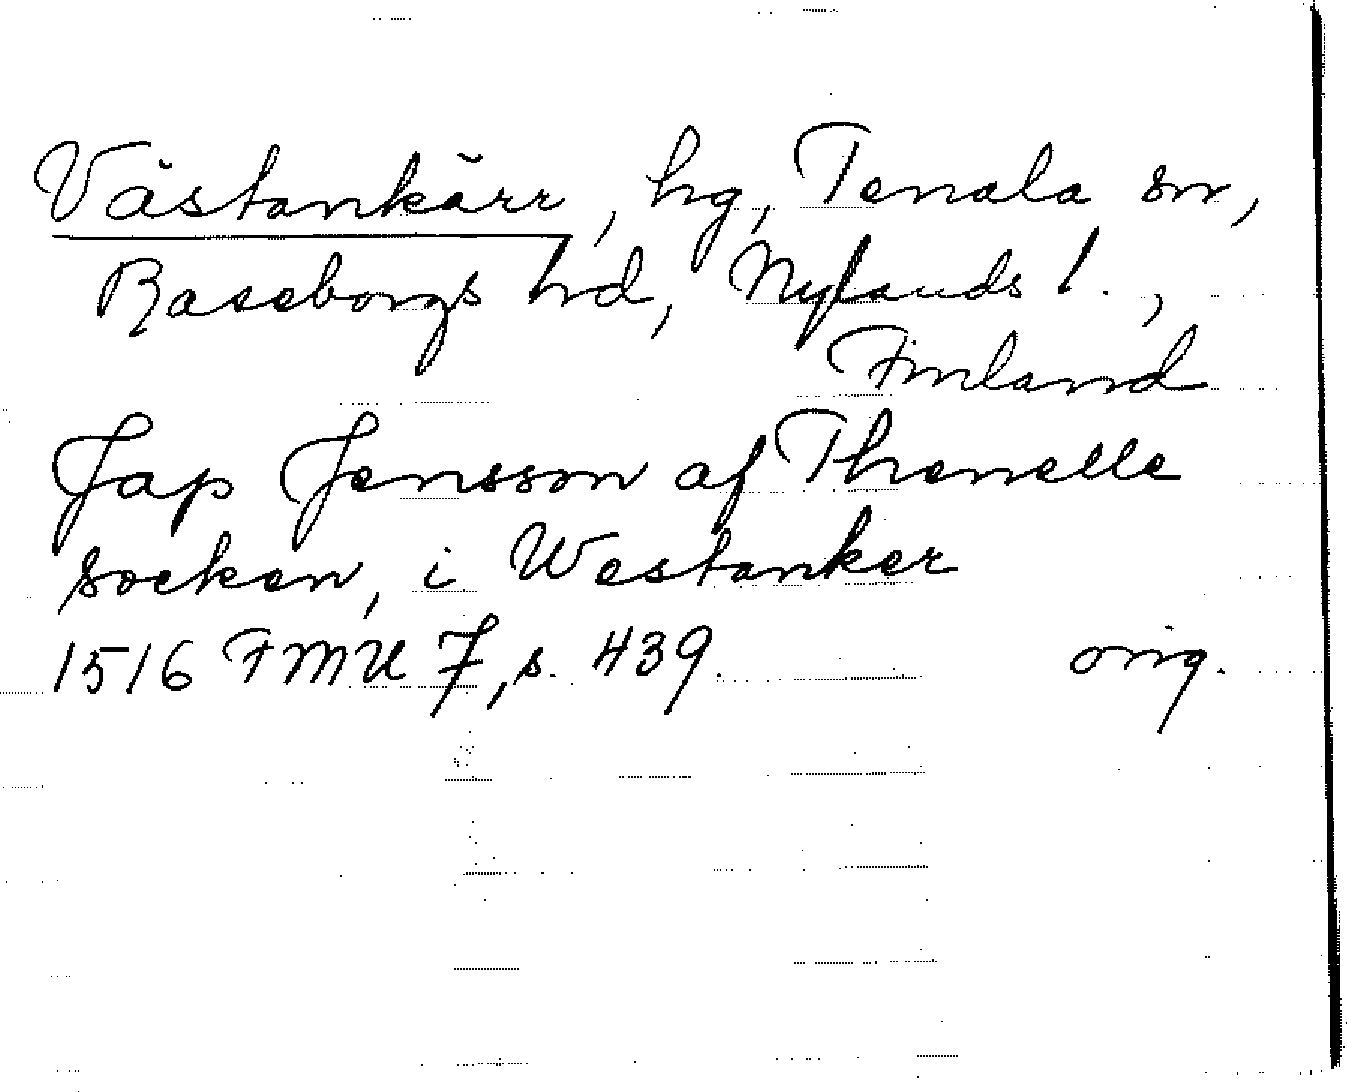 Västankärr, hg, Tenala sn,
Raseborgs hd, Nylands l.,
Finland
Jap Jensson af Thenelle
socken, i Westanker
1516 FMU 7, s. 439. orig.